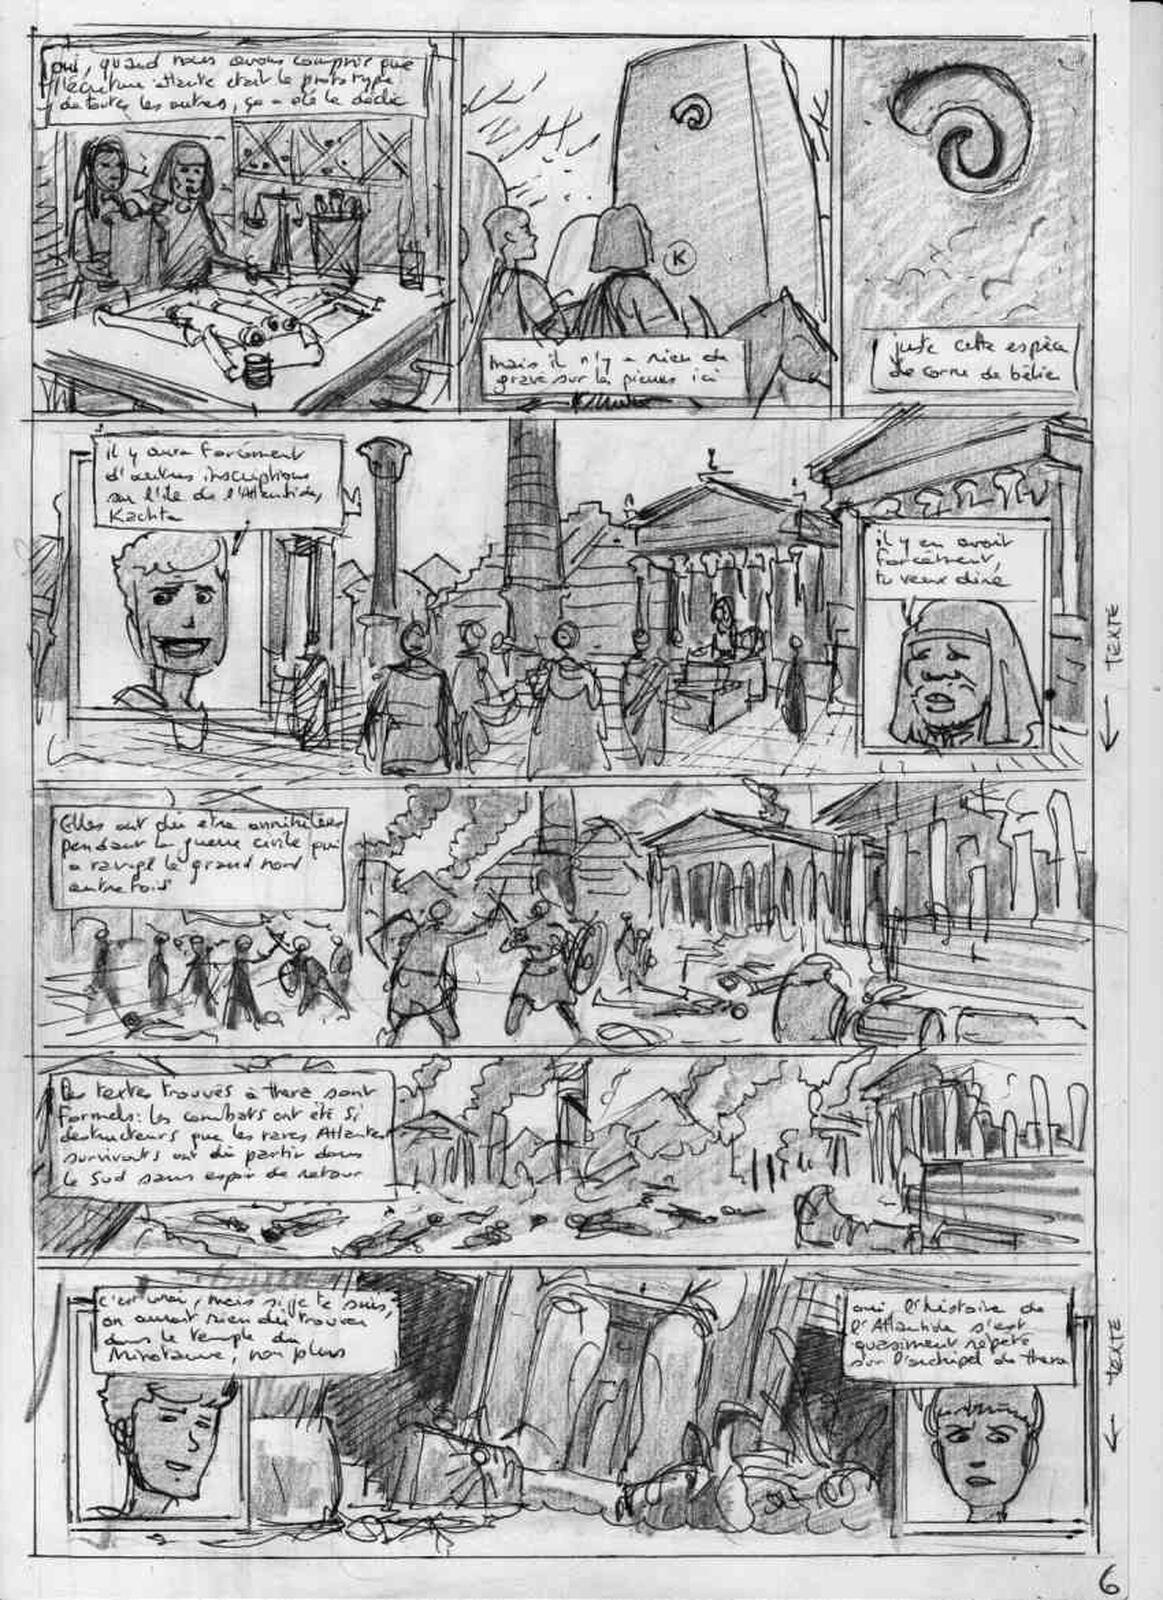 oui, quand nous avons compris que
l'écriture atlante était le prototype
de toutes les autres, ça a été le déclic
mais il n'y a rien de
gravé sur les pierres ici
K
juste cette espèce
de corne de bélier
il y aura forcément
d'autres inscriptions
sur l'île de l'Atlantide,
Kachta
il y en avait
forcément,
tu veux dire
← TEXTE
Elles ont dû être annihilées
pendant la guerre civile qui
a ravagé le grand nord
autrefois
Les textes trouvés à thera sont
formels: les combats ont été si
destructeurs que les rares Atlantes
survivants ont dû partir dans
le Sud sans espoir de retour
c'est vrai, mais si je te suis,
on aurait rien dû trouver
dans le temple du
Minotaure, non plus
oui, l'histoire de
l'Atlantide s'est
quasiment répété
sur l'archipel de thera
← TEXTE
6